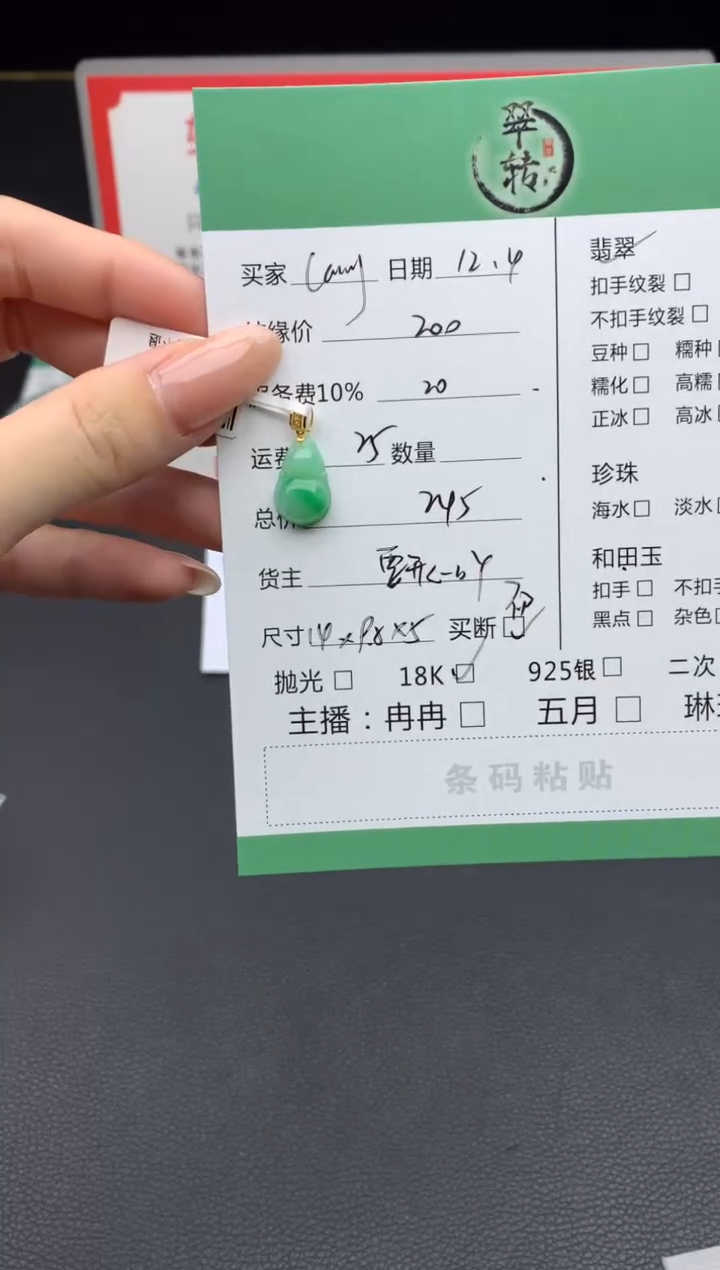 翠
转
买家 日期 12.4
缘价 200
务费10% 20
运费 25 数量
总价 245
货主
尺寸 14×9.8×5 买断
抛光 18K 925银 二次
主播：冉冉 五月 琳
条码粘贴
翡翠
扣手纹裂
不扣手纹裂
豆种 糯种
糯化 高糯
正冰 高冰
珍珠
海水 淡水
和田玉
扣手 不扣手
黑点 杂色